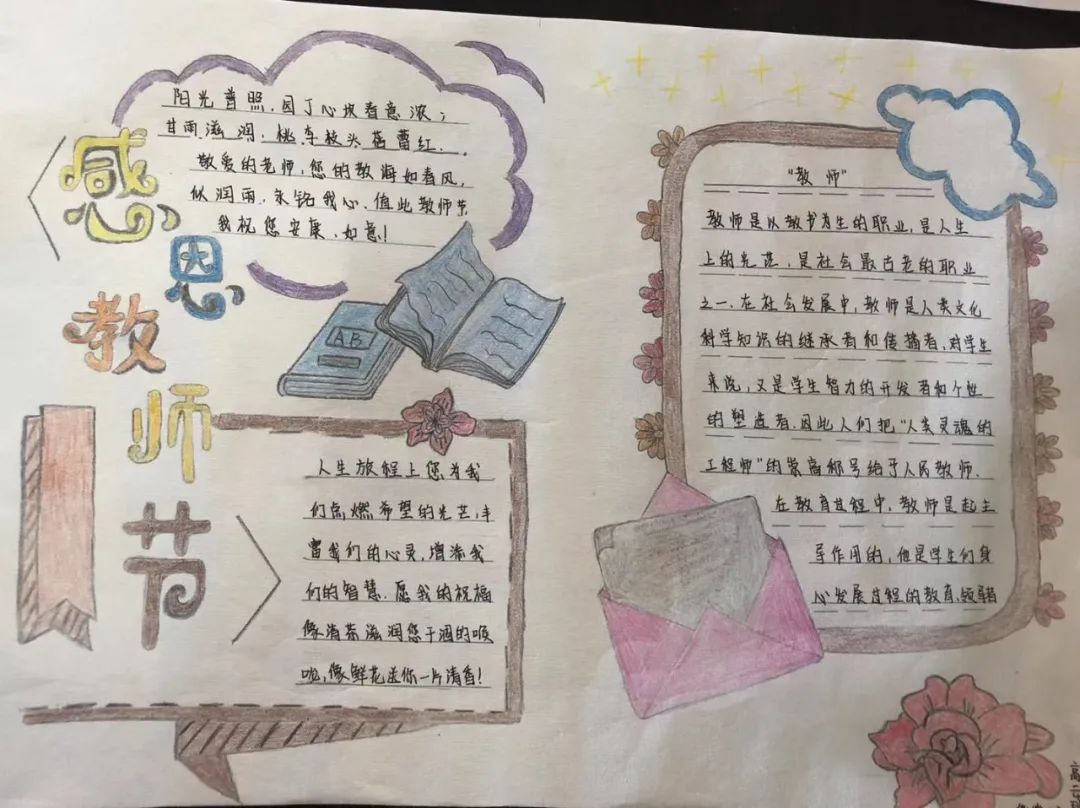 感恩教师节
阳光普照，园丁心坎春意浓；
甘雨滋润，桃李枝头蓓蕾红。
敬爱的老师，您的教诲如春风，
似润雨，永铭我心。值此教师节
我祝您安康、如意！
人生旅程上您为我
们点燃希望的光芒，丰
富我们的心灵，增添我
们的智慧。愿我的祝福
像清茶滋润您干涸的喉
咙，像鲜花送你一片清香！
AB
"教师"
教师是以教书为生的职业，是人生
上的光芒，是社会最古老的职业
之一、在社会发展中，教师是人类文化
科学知识的继承者和传播者，对学生
来说，又是学生智力的开发者和个性
的塑造者。因此人们把"人类灵魂的
工程师"的崇高称号给予人民教师。
在教育过程中，教师是起主
导作用的，他是学生们身
心发展过程的教育、领导者